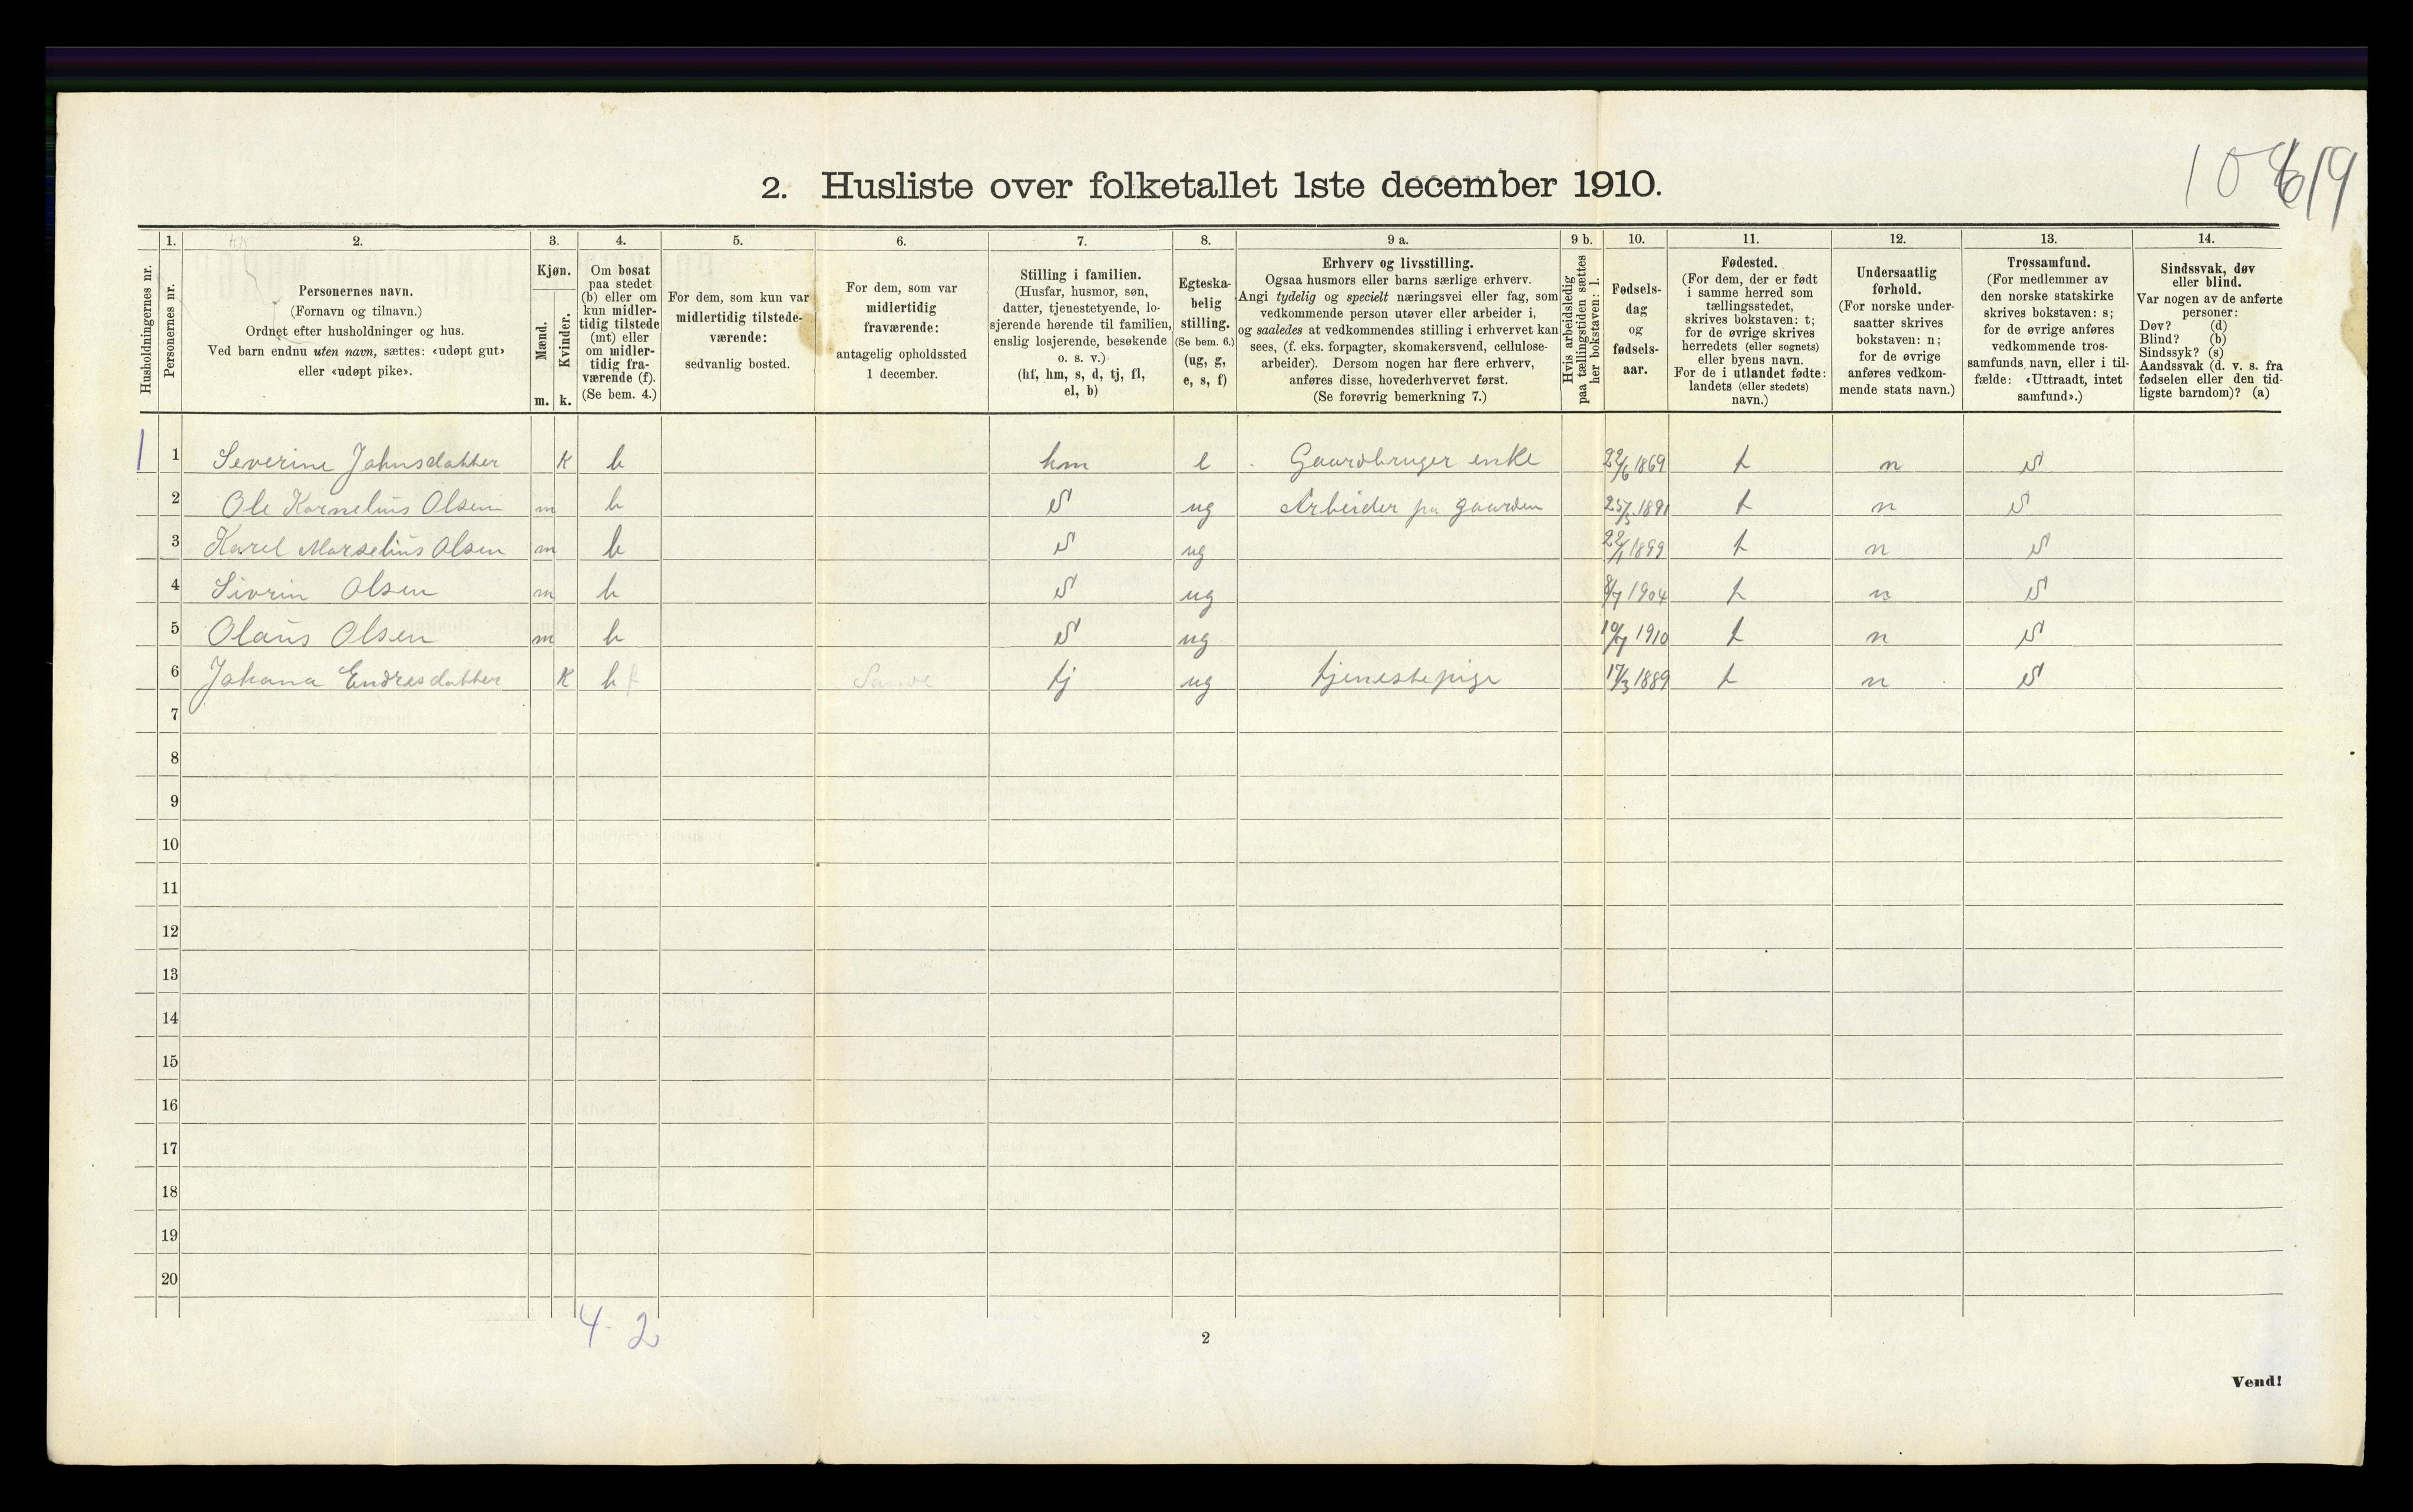 10819
2. Husliste over folketallet 1ste december 1910.
1. 2. 3. 4. 5. 6. 7. 8. 9 a. 9 b. 10. 11. 12. 13. 14.
Husholdningernes nr.
Personernes nr.
Personernes navn.
(Fornavn og tilnavn.)
Ordnet efter husholdninger og hus.
Ved barn endnu uten navn, sættes: «udøpt gut»
eller «udøpt pike».
Kjøn.
Mænd.
Kvinder.
m. k.
Om bosat
paa stedet
(b) eller om
kun midler-
tidig tilstede
(mt) eller
om midler-
tidig fra-
værende (f).
(Se bem. 4.)
For dem, som kun var
midlertidig tilstede-
værende:
sedvanlig bosted.
For dem, som var
midlertidig
fraværende:
antagelig opholdssted
1 december.
Stilling i familien.
(Husfar, husmor, søn,
datter, tjenestetyende, lo-
sjerende hørende til familien,
enslig losjerende, besøkende
o. s. v.)
(hf, hm, s, d, tj, fl,
el, b)
Egteska-
belig
stilling.
(Se bem. 6.)
(ug, g,
e, s, f)
Erhverv og livsstilling.
Ogsaa husmors eller barns særlige erhverv.
Angi tydelig og specielt næringsvei eller fag, som
vedkommende person utøver eller arbeider i,
og saaledes at vedkommendes stilling i erhvervet kan
sees, (f. eks. forpagter, skomakersvend, cellulose-
arbeider). Dersom nogen har flere erhverv,
anføres disse, hovederhvervet først.
(Se forøvrig bemerkning 7.)
Hvis arbeidsledig
paa tællingstiden sættes
her bokstaven: l.
Fødsels-
dag
og
fødsels-
aar.
Fødested.
(For dem, der er født
i samme herred som
tællingsstedet,
skrives bokstaven: t;
for de øvrige skrives
herredets (eller sognets)
eller byens navn.
For de i utlandet fødte:
landets (eller stedets)
navn.)
Undersaatlig
forhold.
(For norske under-
saatter skrives
bokstaven: n;
for de øvrige
anføres vedkom-
mende stats navn.)
Trossamfund.
(For medlemmer av
den norske statskirke
skrives bokstaven: s;
for de øvrige anføres
vedkommende tros-
samfunds navn, eller i til-
fælde: «Uttraadt, intet
samfund».)
Sindssvak, døv
eller blind.
Var nogen av de anførte
personer:
Døv? (d)
Blind? (b)
Sindssyk? (s)
Aandssvak (d. v. s. fra
fødselen eller den tid-
ligste barndom)? (a)
1 1 Severine Johnsdatter K b hm e Gaardbruger enke 22/6 1869 t n s
2 Ole Kornelius Olsen m b s ug Arbeider pa gaarden 25/5 1891 t n s
3 Karel Marselius Olsen m b s ug 22/1 1899 t n s
4 Sivrin Olsen m b s ug 8/7 1904 t n s
5 Olaus Olsen m b s ug 10/7 1910 t n s
6 Johana Endresdatter K b tj ug tjenestepige 17/3 1889 t n s
7
8
9
10
11
12
13
14
15
16
17
18
19
20
4-2
2
Vend!